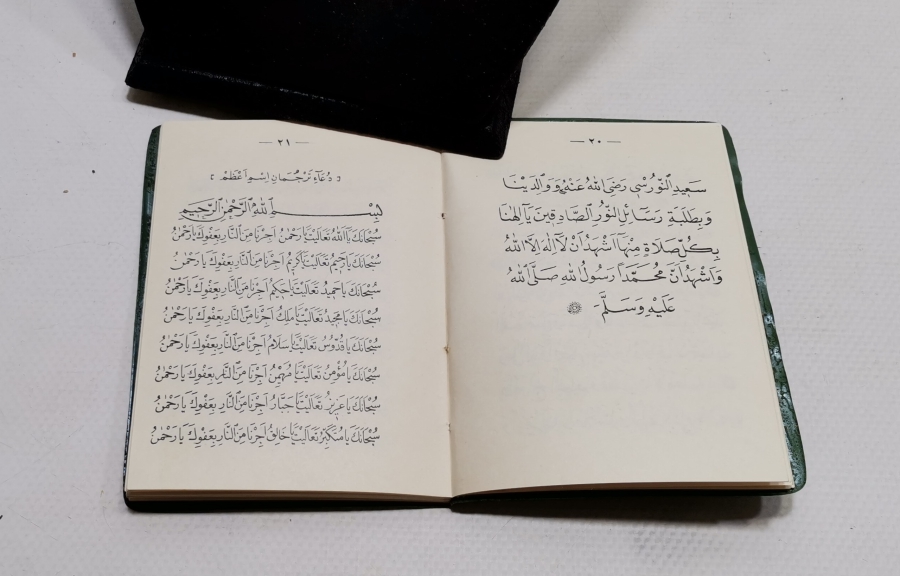 — ٢٠ —
سَعِيدِ النُّورْسِي رَضِيَ اللّٰهُ عَنْهُ وَ وَالِدَيْنَا
وَبِطَلَبَةِ رَسَائِلِ النُّورِ الصَّادِقِينَ يَآاِلٰهَنَا
بِكُلِّ صَلَاةٍ مِنْهَا اَشْهَدُ اَنْ لَآ اِلٰهَ اِلَّا اللّٰهُ
وَاَشْهَدُ اَنَّ مُحَمَّدًا رَسُولُ اللّٰهِ صَلَّى اللّٰهُ
عَلَيْهِ وَسَلَّمَ
— ٢١ —
[ دُعَاءِ تَرْجُمَانِ اِسْمِ اَعْظَمْ ]
بِسْمِ اللّٰهِ الرَّحْمٰنِ الرَّحِيمِ
سُبْحَانَكَ يَا اَللّٰهُ تَعَالَيْتَ يَا رَحْمٰنُ اَجِرْنَا مِنَ النَّارِ بِعَفْوِكَ يَا رَحْمٰنُ
سُبْحَانَكَ يَا رَحِيمُ تَعَالَيْتَ يَا كَرِيمُ اَجِرْنَا مِنَ النَّارِ بِعَفْوِكَ يَا رَحْمٰنُ
سُبْحَانَكَ يَا حَمِيدُ تَعَالَيْتَ يَا حَكِيمُ اَجِرْنَا مِنَ النَّارِ بِعَفْوِكَ يَا رَحْمٰنُ
سُبْحَانَكَ يَا مَجِيدُ تَعَالَيْتَ يَا مَلِكُ اَجِرْنَا مِنَ النَّارِ بِعَفْوِكَ يَا رَحْمٰنُ
سُبْحَانَكَ يَا قُدُّوسُ تَعَالَيْتَ يَا سَلَامُ اَجِرْنَا مِنَ النَّارِ بِعَفْوِكَ يَا رَحْمٰنُ
سُبْحَانَكَ يَا مُؤْمِنُ تَعَالَيْتَ يَا مُهَيْمِنُ اَجِرْنَا مِنَ النَّارِ بِعَفْوِكَ يَا رَحْمٰنُ
سُبْحَانَكَ يَا عَزِيزُ تَعَالَيْتَ يَا جَبَّارُ اَجِرْنَا مِنَ النَّارِ بِعَفْوِكَ يَا رَحْمٰنُ
سُبْحَانَكَ يَا مُتَكَبِّرُ تَعَالَيْتَ يَا خَالِقُ اَجِرْنَا مِنَ النَّارِ بِعَفْوِكَ يَا رَحْمٰنُ